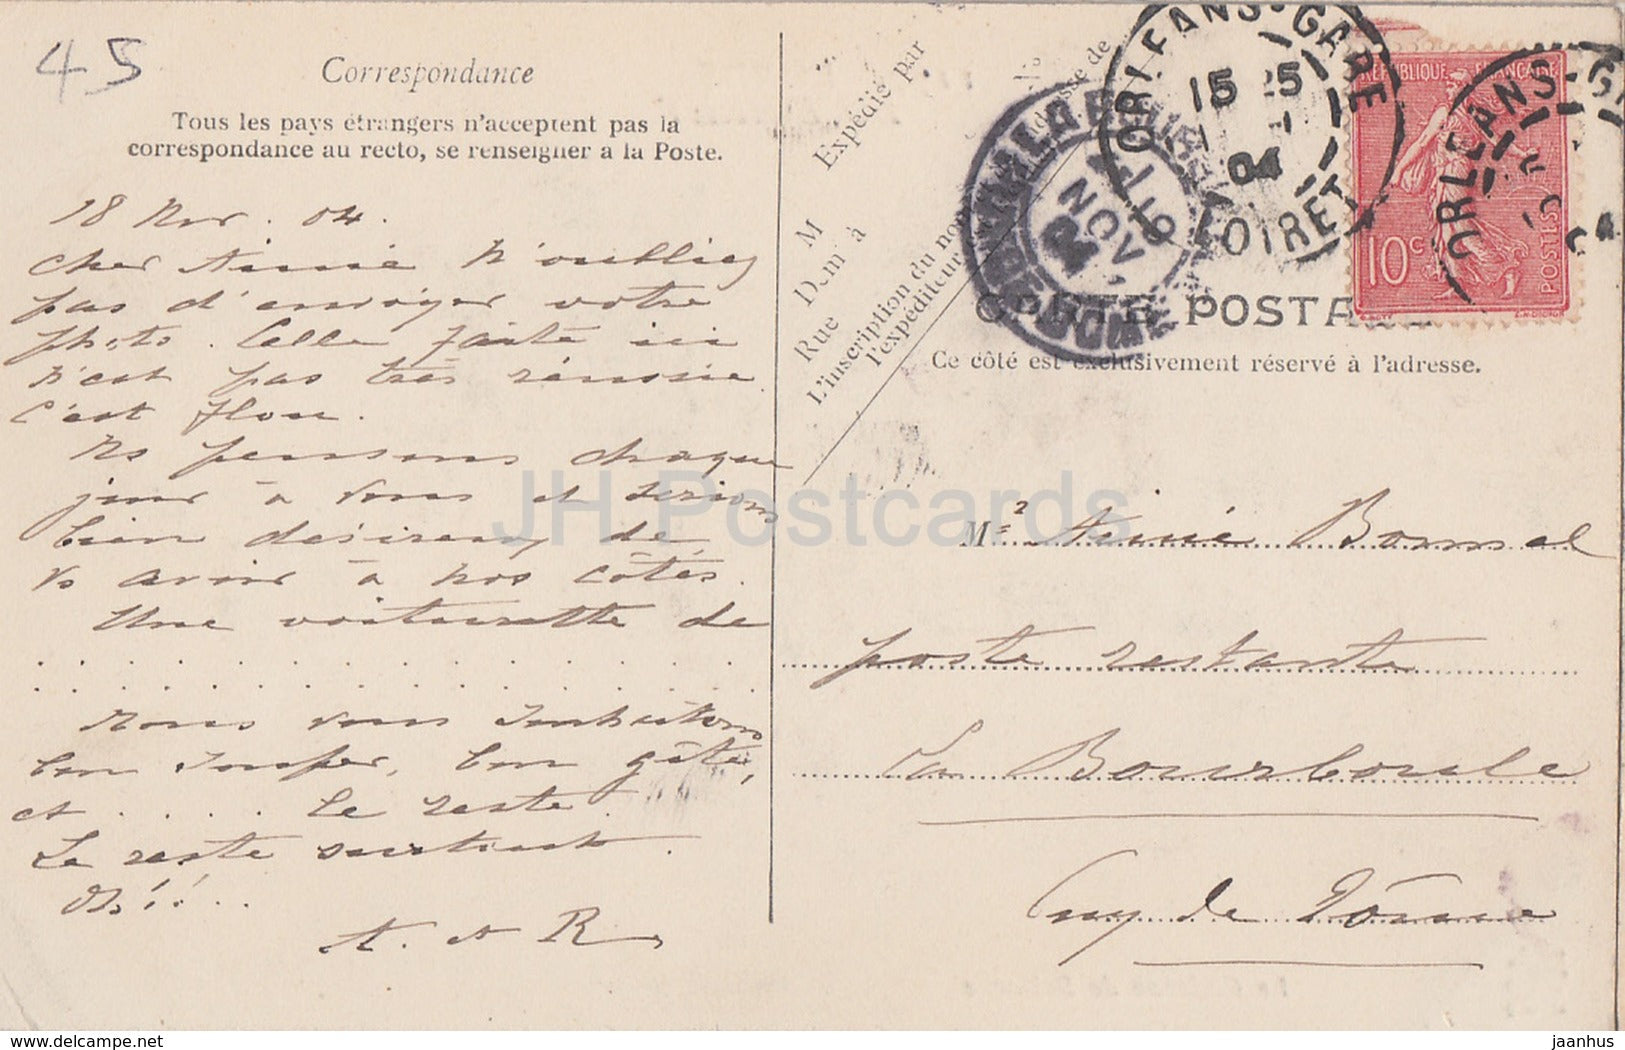 45
Correspondance
Tous les pays étrangers n'acceptent pas la
correspondance au recto, se renseigner à la Poste.
18 Nov. 04.
Cher Aimé N'oubliez
pas d'envoyer votre
photo. Celle faite ici
n'est pas très réussie
c'est flou.
Ns pensons chaque
jour à vous et serions
bien désireux de
vs avoir à nos côtés.
Une voiturette de
. . . . . . . . . . . . . . .
. . . . . . . . . . . . . . . .
Nous vous souhaitons
bon souper, bon gîte,
et . . . . le reste.
Le reste surtout.
A. et R.
M
Expédié par
M
Dem à
Rue
L'inscription du nom
l'expéditeur
adresse de
CARTE POSTALE
Ce côté est exclusivement réservé à l'adresse.
ORLEANS-GARE
15 25
04
LOIRET
NOV
PUY-DE-DOME
REPUBLIQUE FRANÇAISE
10c
POSTES
ORLEANS
Mr Aimé Bonnal
poste restante
La Bourboule
Puy de Dôme
JH Postcards
jaanhus www.delcampe.net